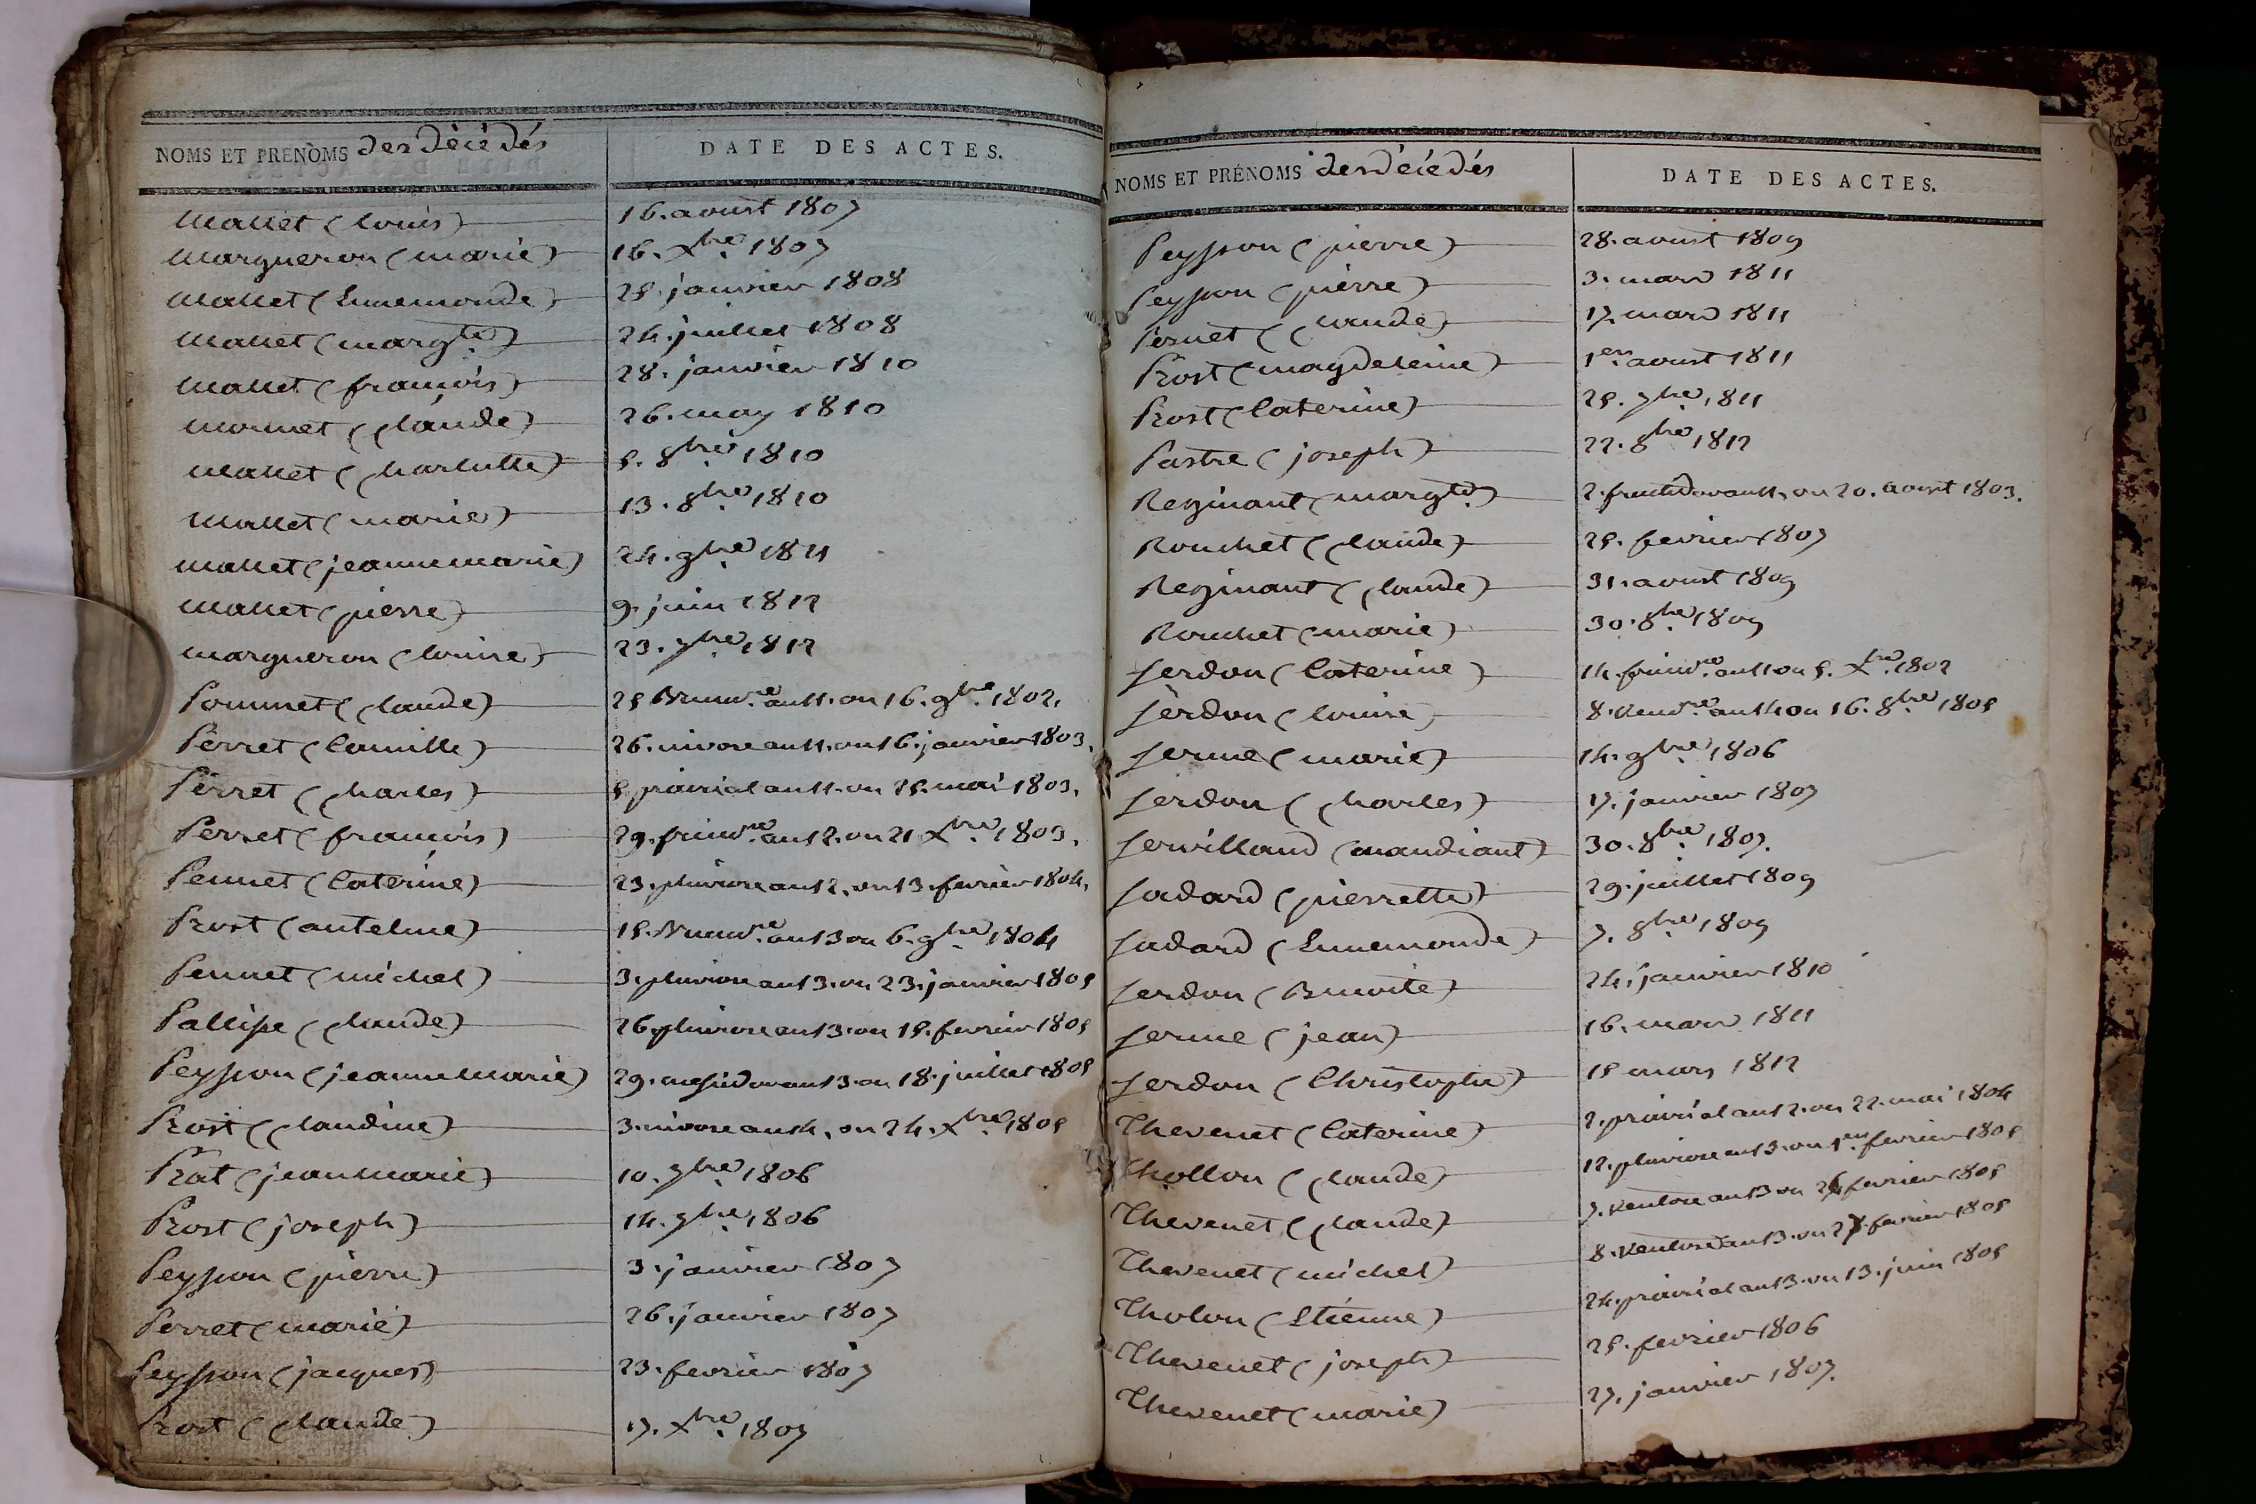 NOMS ET PRÉNOMS des décédés DATE DES ACTES.
Mallet (louis) 16. aoust 1807
Margueron (marie) 16. Xbre. 1807
Mallet (Ennemonde) 25. janvier 1808
Mallet (margte.) 24. juillet 1808
Mallet (françois) 28. janvier 1810
Monnet (Claude) 26. may 1810
Mallet (Charlotte) 5. 8bre. 1810
Mallet (marie) 13. 8bre. 1810
Mallet (jeanne marie) 24. 9bre. 1811
Mallet (pierre) 9. juin 1812
Margueron (louise) 23. 7bre. 1812
Pommet (Claude) 25 Brumre. an 11. ou 16. 9bre. 1802.
Perret (Camille) 26. nivose an 11. ou 16. janvier 1803.
Perret (Charles) 5. prairial an 11. ou 25. mai 1803.
Perret (françois) 29. frimre. an 12. ou 21 Xbre. 1803.
Pennet (Caterine) 23. pluviose an 12. ou 13. fevrier 1804.
Prost (antelme) 15. Brumre. an 13 ou 6. 9bre. 1804
Pennet (michel) 3. pluviose an 13. ou 23. janvier 1805
Pallisse (Claude) 26. pluviose an 13. ou 15. fevrier 1805
Peysson (jeanne marie) 29. messidor an 13. ou 18. juillet 1805
Prost (Claudine) 3. nivose an 14. ou 24. Xbre. 1805
Prat (jean marie) 10. 7bre. 1806
Prost (joseph) 14. 7bre. 1806
Peysson (pierre) 3. janvier 1807
Perret (marie) 26. janvier 1807
Peysson (jacques) 23. fevrier 1807
Prost (Claude) 17. Xbre. 1807
NOMS ET PRÉNOMS des décédés DATE DES ACTES.
Peysson (pierre) 28. aoust 1809
Peysson (pierre) 3. mars 1811
Pernet (Claude) 17. mars 1811
Prost (magdeleine) 1er. aoust 1811
Prost (Caterine) 25. 7bre. 1811
Pastre (joseph) 22. 8bre. 1812
Reginant (margte.) 2. fructidor an 11. ou 20. aoust 1803.
Rouchet (Claude) 25. fevrier 1807
Reginant (Claude) 31. aoust 1809
Rouchet (marie) 30. 8bre. 1809
Serdon (Caterine) 14. frimre. an 11 ou 5. Xbre. 1802
Serdon (louise) 8. vendre. an 14 ou 16. 8bre. 1805
Serme (marie) 14. 9bre. 1806
Serdon (Charles) 17. janvier 1807
Servilland (mandiant) 30. 8bre. 1807.
Sadard (pierrette) 29. juillet 1809
Sadard (Ennemonde) 7. 8bre. 1809
Serdon (Benoite) 24. janvier 1810
Serme (jean) 16. mars 1811
Serdon (Christophe) 15 mars 1812
Thevenet (Caterine) 2. prairial an 12. ou 22. mai 1804
Thollon (Claude) 12. pluviose an 13. ou 1er. fevrier 1805
Thevenet (Claude) 7. ventose an 13 ou 26 fevrier 1805
Thevenet (michel) 8. ventose an 13. ou 27. fevrier 1805
Tholon (Etienne) 24. prairial an 13. ou 13. juin 1805
Thevenet (joseph) 25. fevrier 1806
Thevenet (marie) 27. janvier 1807.